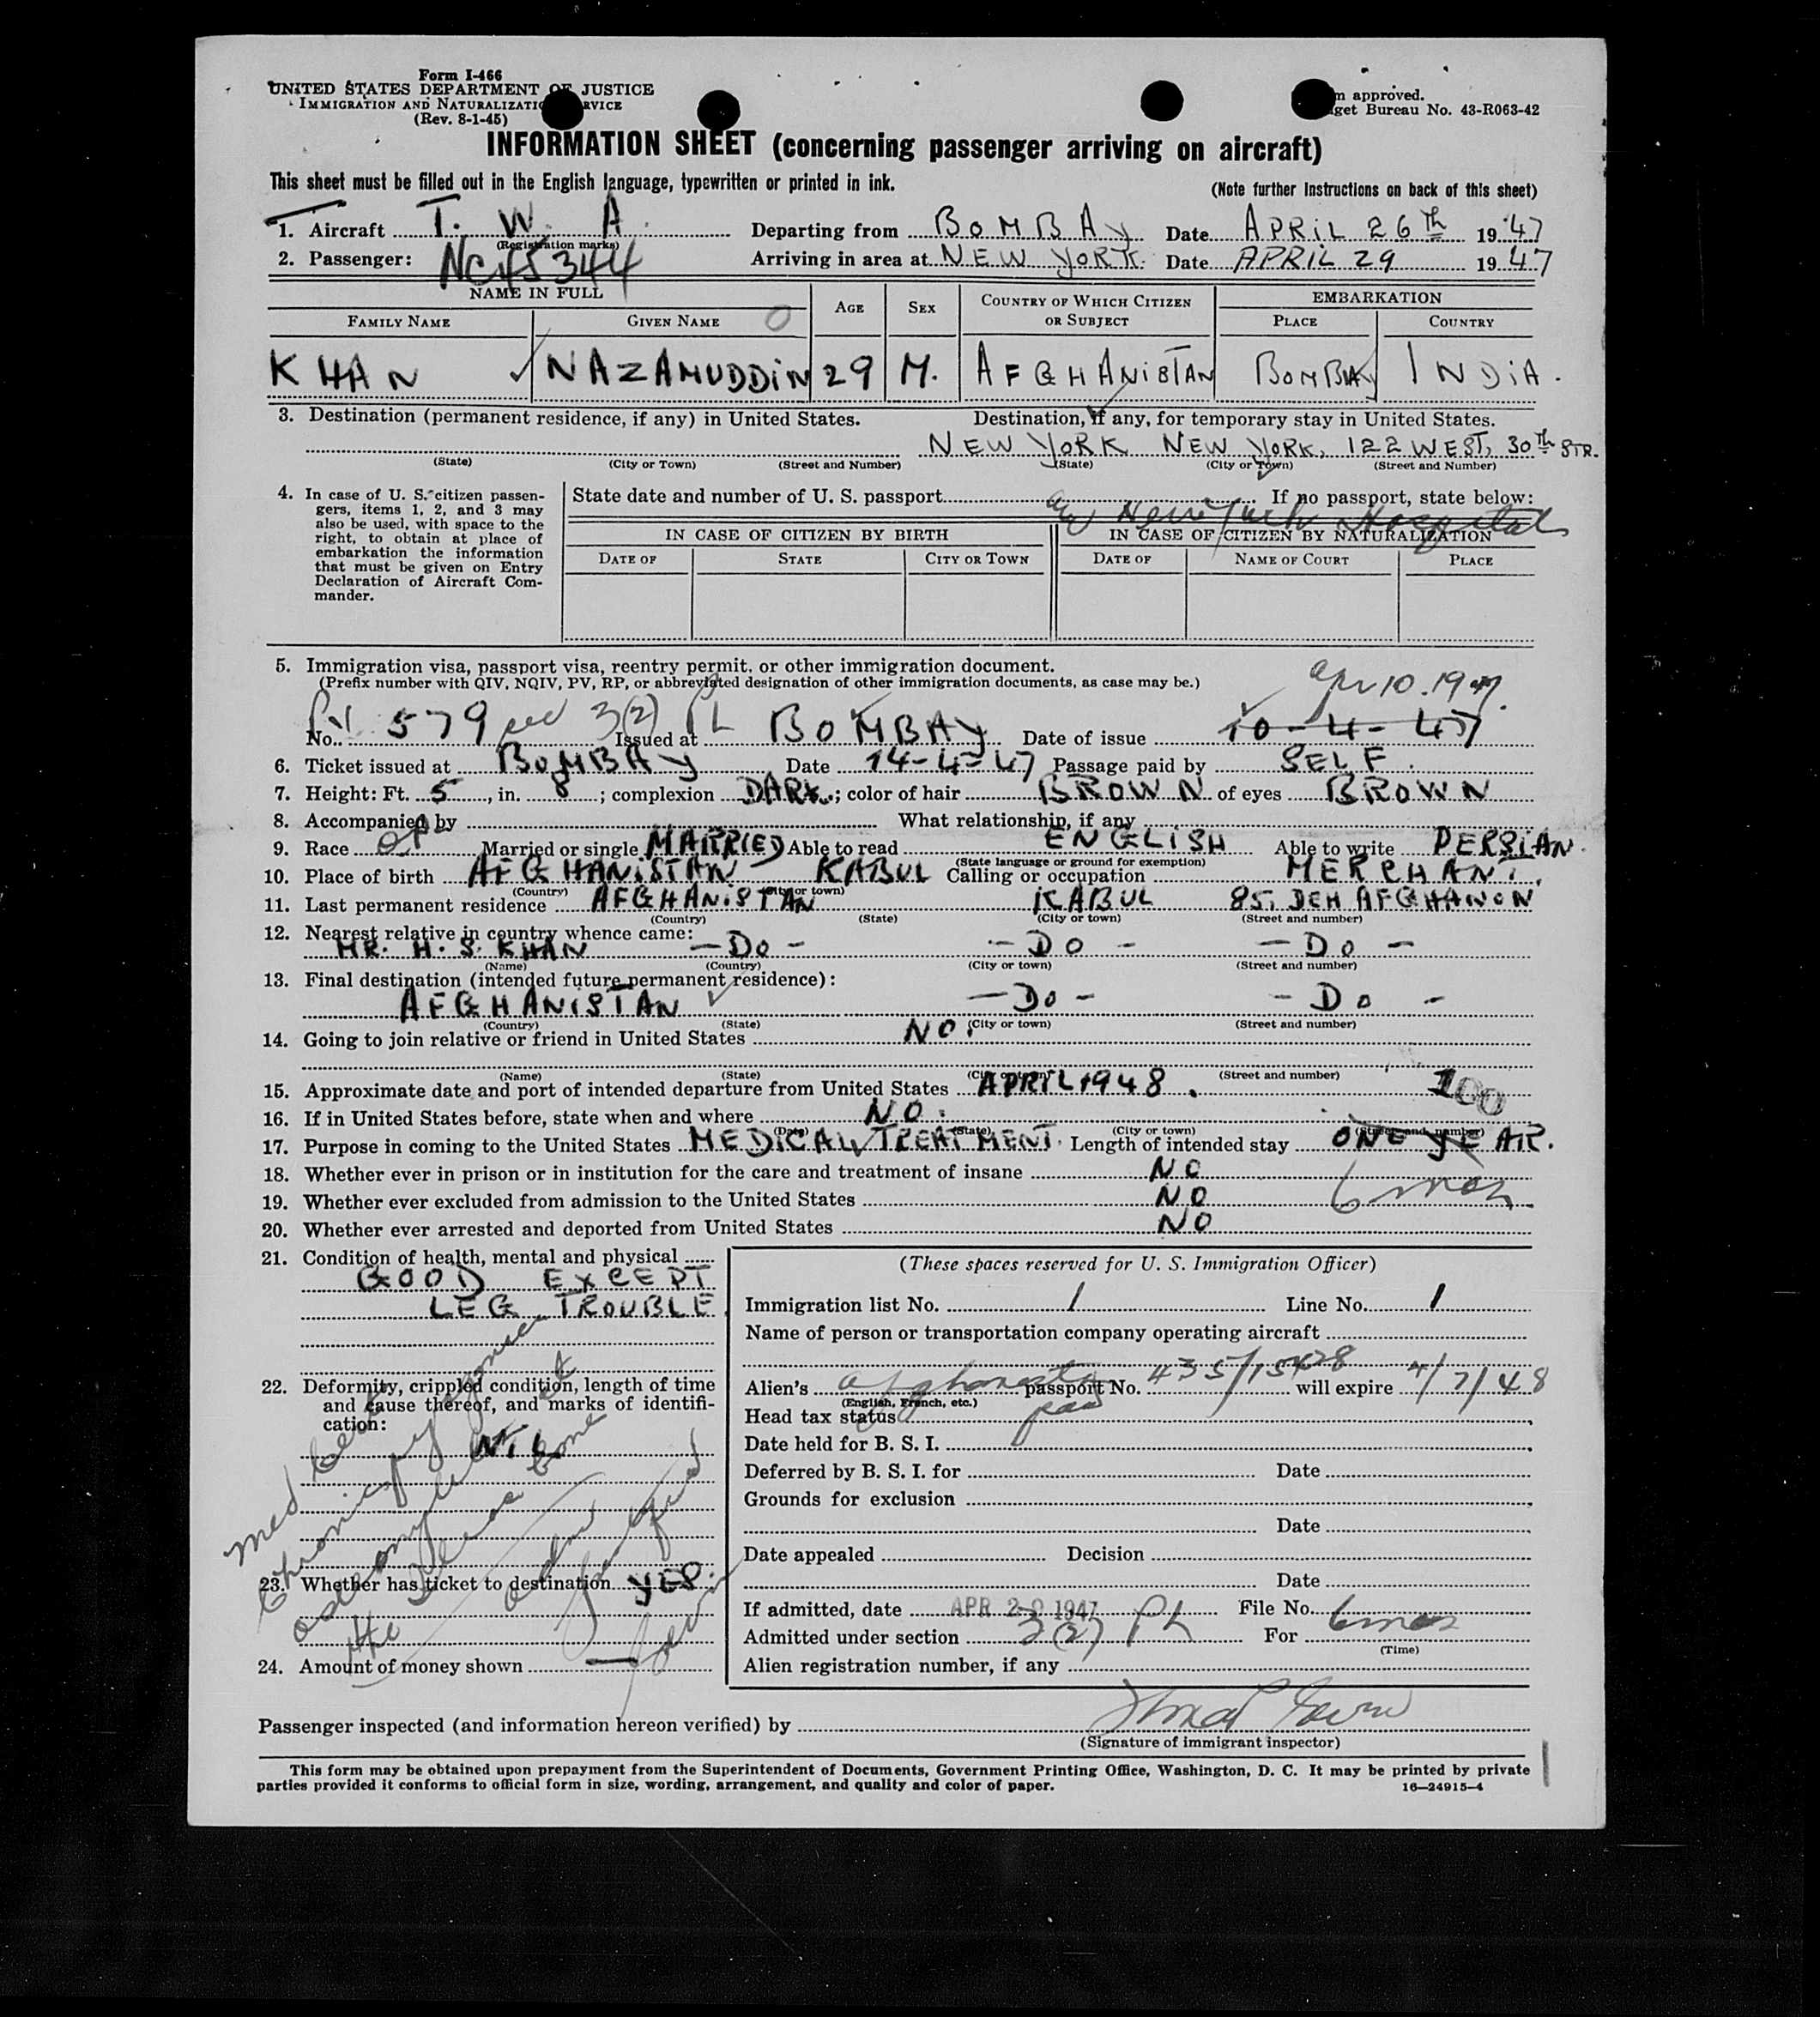 Form I-466
UNITED STATES DEPARTMENT OF JUSTICE
IMMIGRATION AND NATURALIZATION SERVICE
(Rev. 8-1-45)
approved.
Bureau No. 43-R063-42
INFORMATION SHEET (concerning passenger arriving on aircraft)
This sheet must be filled out in the English language, typewritten or printed in ink.
(Note further instructions on back of this sheet)
1. Aircraft T. W. A. Departing from BOMBAY Date APRIL 26th 1947
(Registration marks)
2. Passenger: NC45344 Arriving in area at NEW YORK. Date APRIL 29 1947
NAME IN FULL
FAMILY NAME GIVEN NAME AGE SEX COUNTRY OF WHICH CITIZEN OR SUBJECT EMBARKATION PLACE COUNTRY
KHAN NAZAMUDDIN 29 M. AFGHANISTAN BOMBAY INDIA.
3. Destination (permanent residence, if any) in United States. Destination, if any, for temporary stay in United States.
NEW YORK NEW YORK, 122 WEST, 30th STR.
(State) (City or Town) (Street and Number) (State) (City or Town) (Street and Number)
4. In case of U. S. citizen passengers, items 1, 2, and 3 may also be used, with space to the right, to obtain at place of embarkation the information that must be given on Entry Declaration of Aircraft Commander.
State date and number of U. S. passport If no passport, state below:
New York Hospital
IN CASE OF CITIZEN BY BIRTH IN CASE OF CITIZEN BY NATURALIZATION
DATE OF STATE CITY OR TOWN DATE OF NAME OF COURT PLACE
5. Immigration visa, passport visa, reentry permit, or other immigration document.
(Prefix number with QIV, NQIV, PV, RP, or abbreviated designation of other immigration documents, as case may be.)
Apr 10. 1947.
No. PV 579 sec 3(2) PL Issued at BOMBAY Date of issue 10-4-47
6. Ticket issued at BOMBAY Date 14-4-47 Passage paid by SELF.
7. Height: Ft. 5, in. 8; complexion DARK; color of hair BROWN of eyes BROWN
8. Accompanied by What relationship, if any
9. Race Married or single MARRIED Able to read ENGLISH Able to write PERSIAN.
(State language or ground for exemption)
10. Place of birth AFGHANISTAN KABUL Calling or occupation MERCHANT.
(Country) (City or town)
11. Last permanent residence AFGHANISTAN KABUL 85, DEH AFGHANON
(Country) (State) (City or town) (Street and number)
12. Nearest relative in country whence came:
MR. H. S. KHAN - Do - - Do - - Do -
(Name) (Country) (City or town) (Street and number)
13. Final destination (intended future permanent residence):
AFGHANISTAN - Do - - Do -
(Country) (State) (City or town) (Street and number)
14. Going to join relative or friend in United States NO.
(Name) (State) (City or town) (Street and number)
15. Approximate date and port of intended departure from United States APRIL 1948. 100
16. If in United States before, state when and where NO.
(Date) (State) (City or town) (Street and number)
17. Purpose in coming to the United States MEDICAL TREATMENT. Length of intended stay ONE YEAR.
18. Whether ever in prison or in institution for the care and treatment of insane NO
6 mos
19. Whether ever excluded from admission to the United States NO
20. Whether ever arrested and deported from United States NO
21. Condition of health, mental and physical
GOOD EXCEPT
LEG TROUBLE.
22. Deformity, crippled condition, length of time and cause thereof, and marks of identification:
NIL
Med Cert
Chronic
osteomyelitis
the bone
23. Whether has ticket to destination YES.
24. Amount of money shown —
(These spaces reserved for U. S. Immigration Officer)
Immigration list No. 1 Line No. 1
Name of person or transportation company operating aircraft
Alien's passport No. 435/15428 will expire 4/7/48
(English, French, etc.)
Head tax status
Date held for B. S. I.
Deferred by B. S. I. for Date
Grounds for exclusion
Date
Date appealed Decision
Date
If admitted, date APR 29 1947 File No. 6 mos
Admitted under section 3(2) PL For
(Time)
Alien registration number, if any
Passenger inspected (and information hereon verified) by
(Signature of immigrant inspector)
This form may be obtained upon prepayment from the Superintendent of Documents, Government Printing Office, Washington, D. C. It may be printed by private
parties provided it conforms to official form in size, wording, arrangement, and quality and color of paper.
16—24915-4